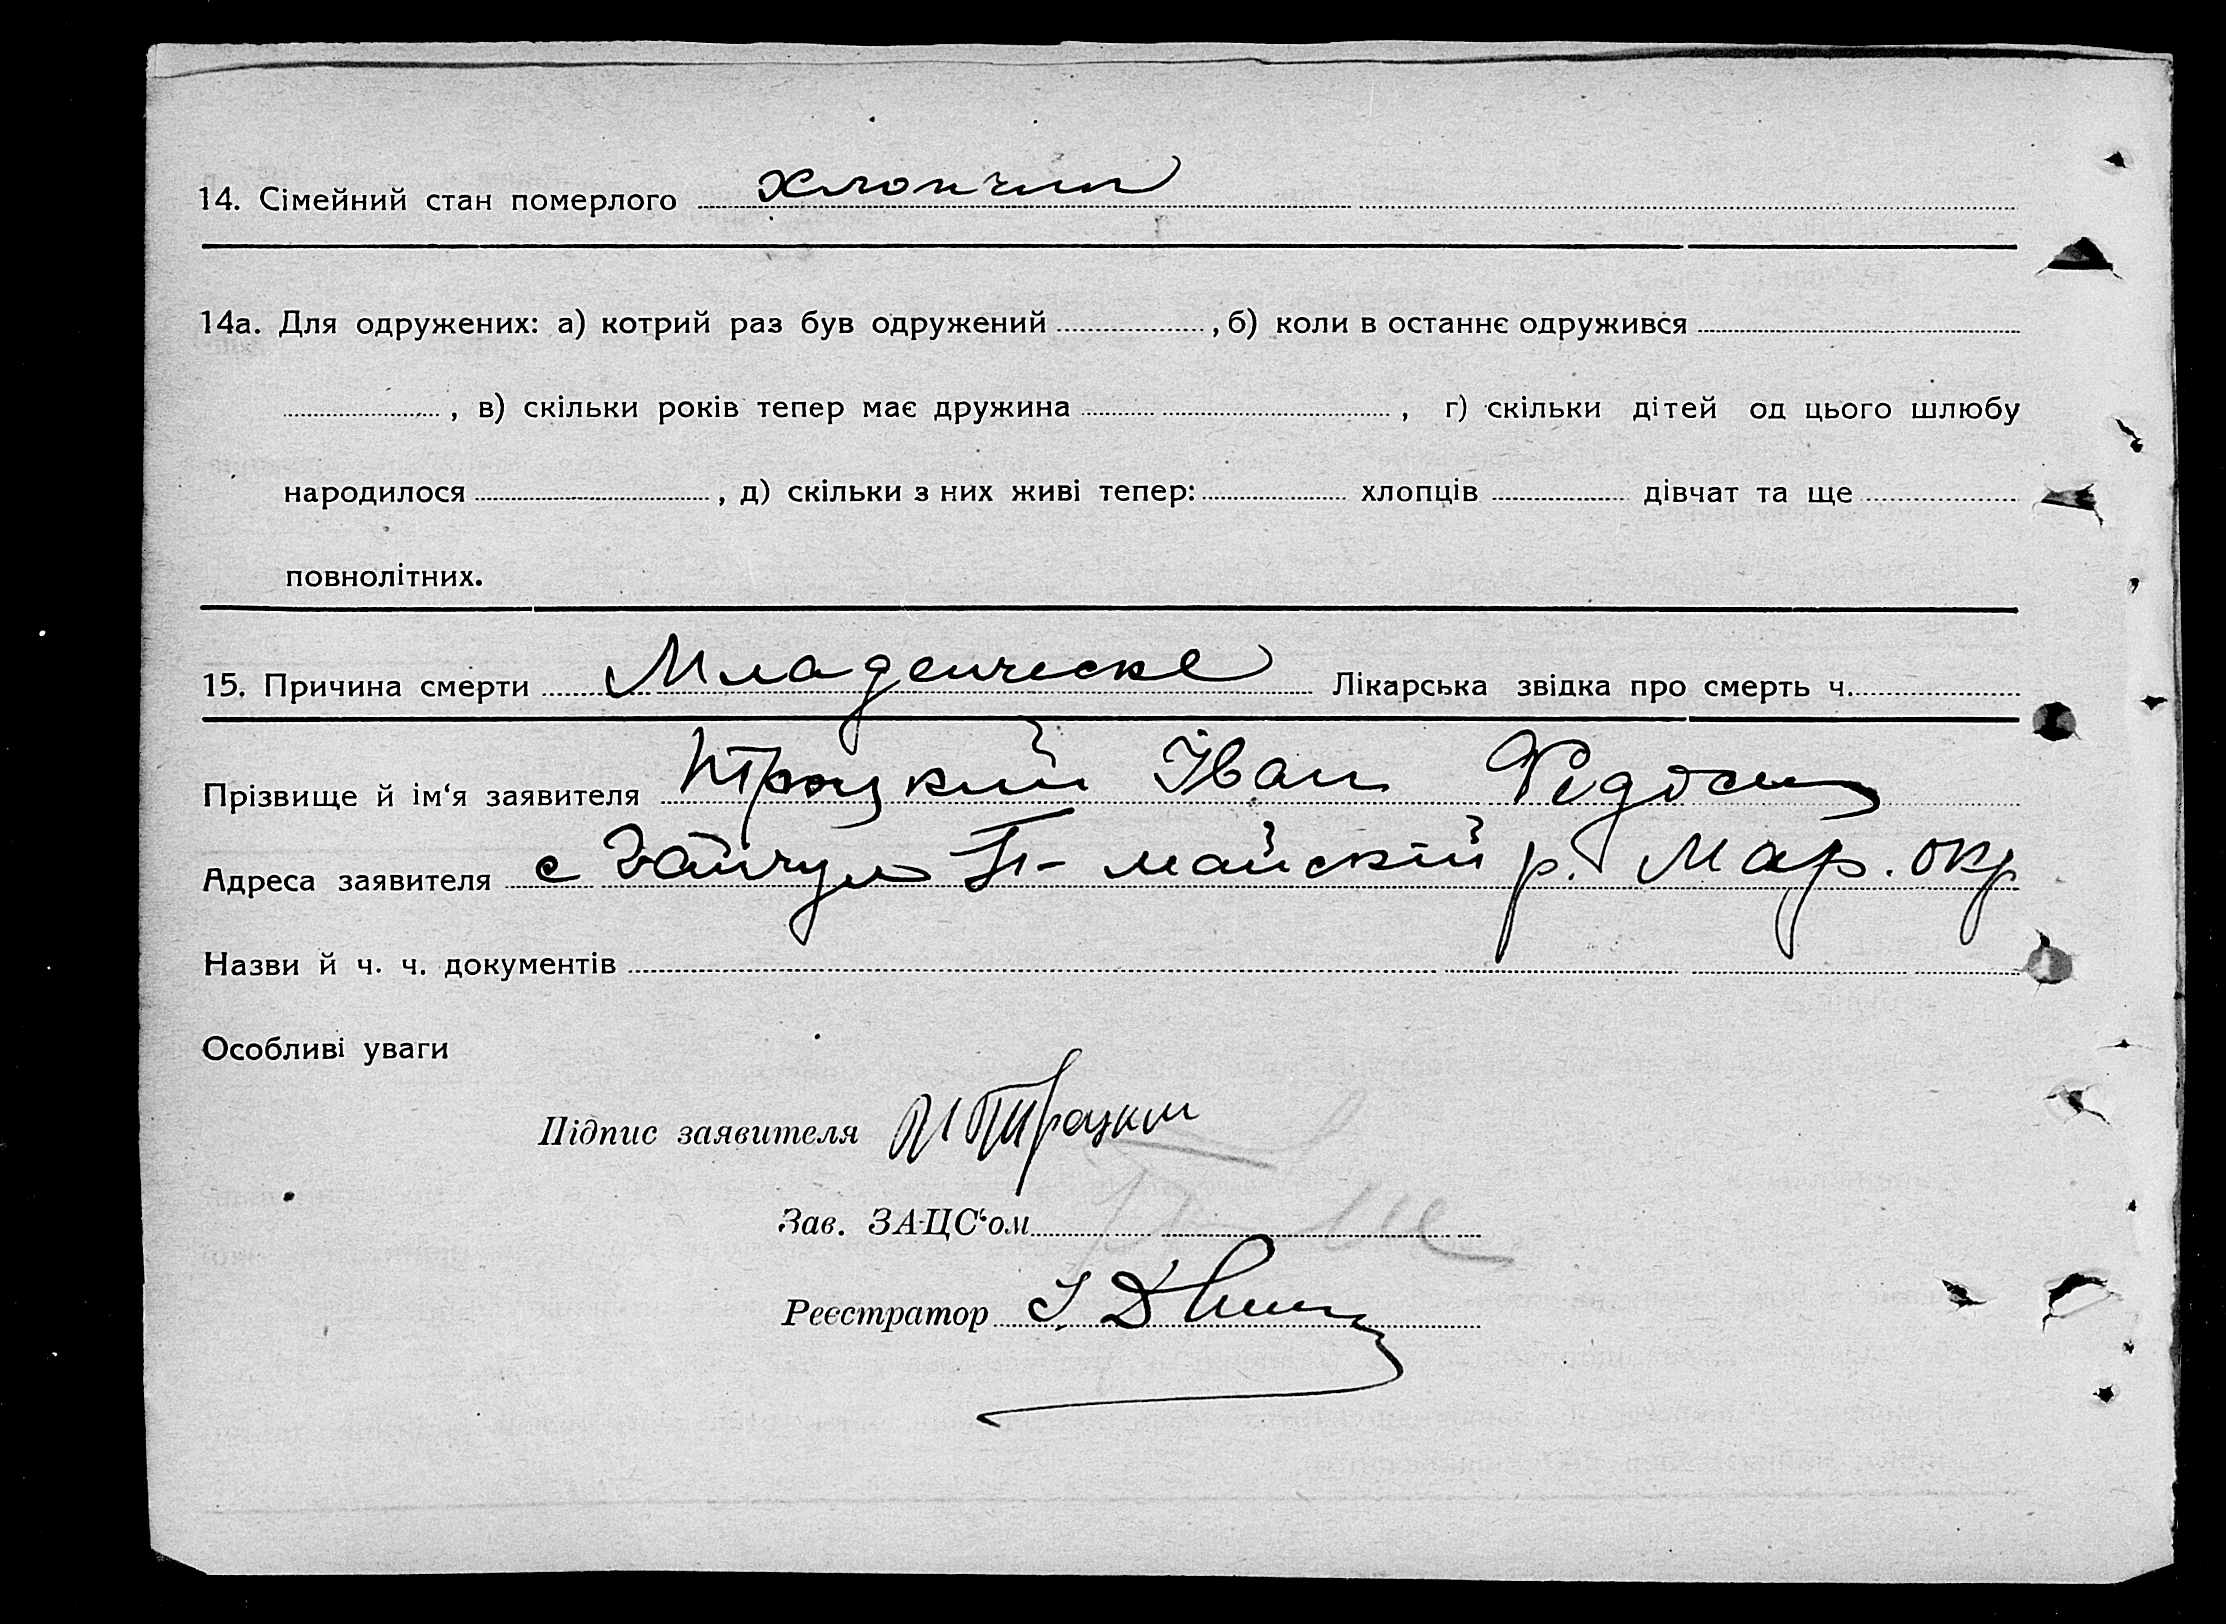 14. Сімейний стан померлого хлопчик
14а. Для одружених: а) котрий раз був одружений , б) коли в останнє одружився
, в) скільки років тепер має дружина , г) скільки дітей од цього шлюбу
народилося , д) скільки з них живі тепер: хлопців дівчат та ще
повнолітних.
15. Причина смерти Младенческе Лікарська звідка про смерть ч.
Прізвище й ім‘я заявителя Троцкий Іван Федос
Адреса заявителя с Гайчул П- майский р. Мар. окр
Назви й ч. ч. документів
Особливі уваги
Підпис заявителя И Троцкий
Зав. ЗАЦС‘ом
Реєстратор І.